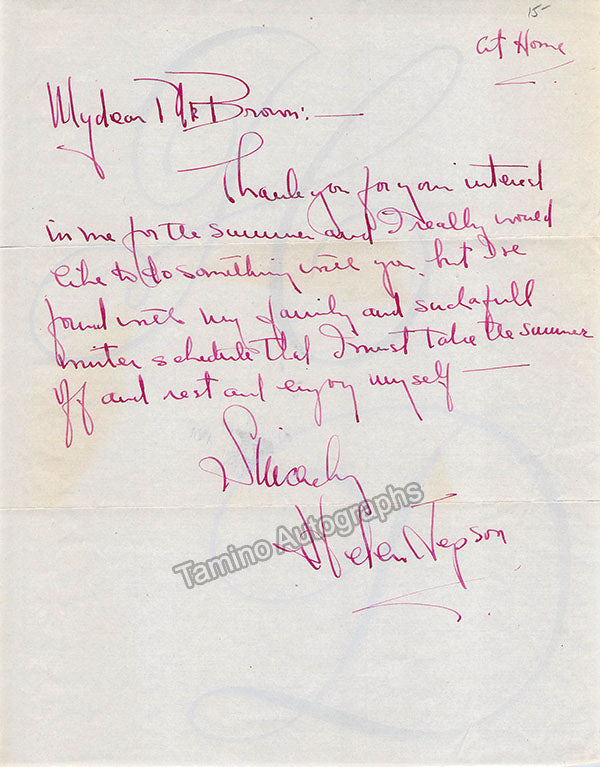 15-
At Home
My dear Mr Brown:—
Thank you for your interest
in me for the summer and I really would
like to do something with you, but I've
found with my family and such a full
winter schedule that I must take the summer
off and rest and enjoy myself —
Sincerely
Helen Jepson
Tamino Autographs